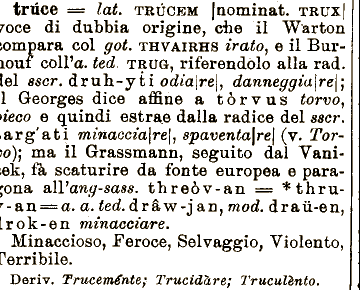 trúce = lat. TRÚCEM |nominat. TRUX|
voce di dubbia origine, che il Warton
compara col got. THVAIRHS irato, e il Bur-
nouf coll'a. ted. TRUG, riferendolo alla rad.
del sscr. druh-yti odia|re|, danneggia|re|;
il Georges dice affine a tòrvus torvo,
bieco e quindi estrae dalla radice del sscr.
targ'ati minaccia|re|, spaventa|re| (v. Tor-
vo); ma il Grassmann, seguito dal Vani-
sek, fà scaturire da fonte europea e para-
gona all'ang-sass. threòv-an = *thru-
v-an = a. a. ted. drâw-jan, mod. draü-en,
drok-en minacciare.
Minaccioso, Feroce, Selvaggio, Violento,
Terribile.
Deriv. Truceménte; Trucidàre; Truculènto.